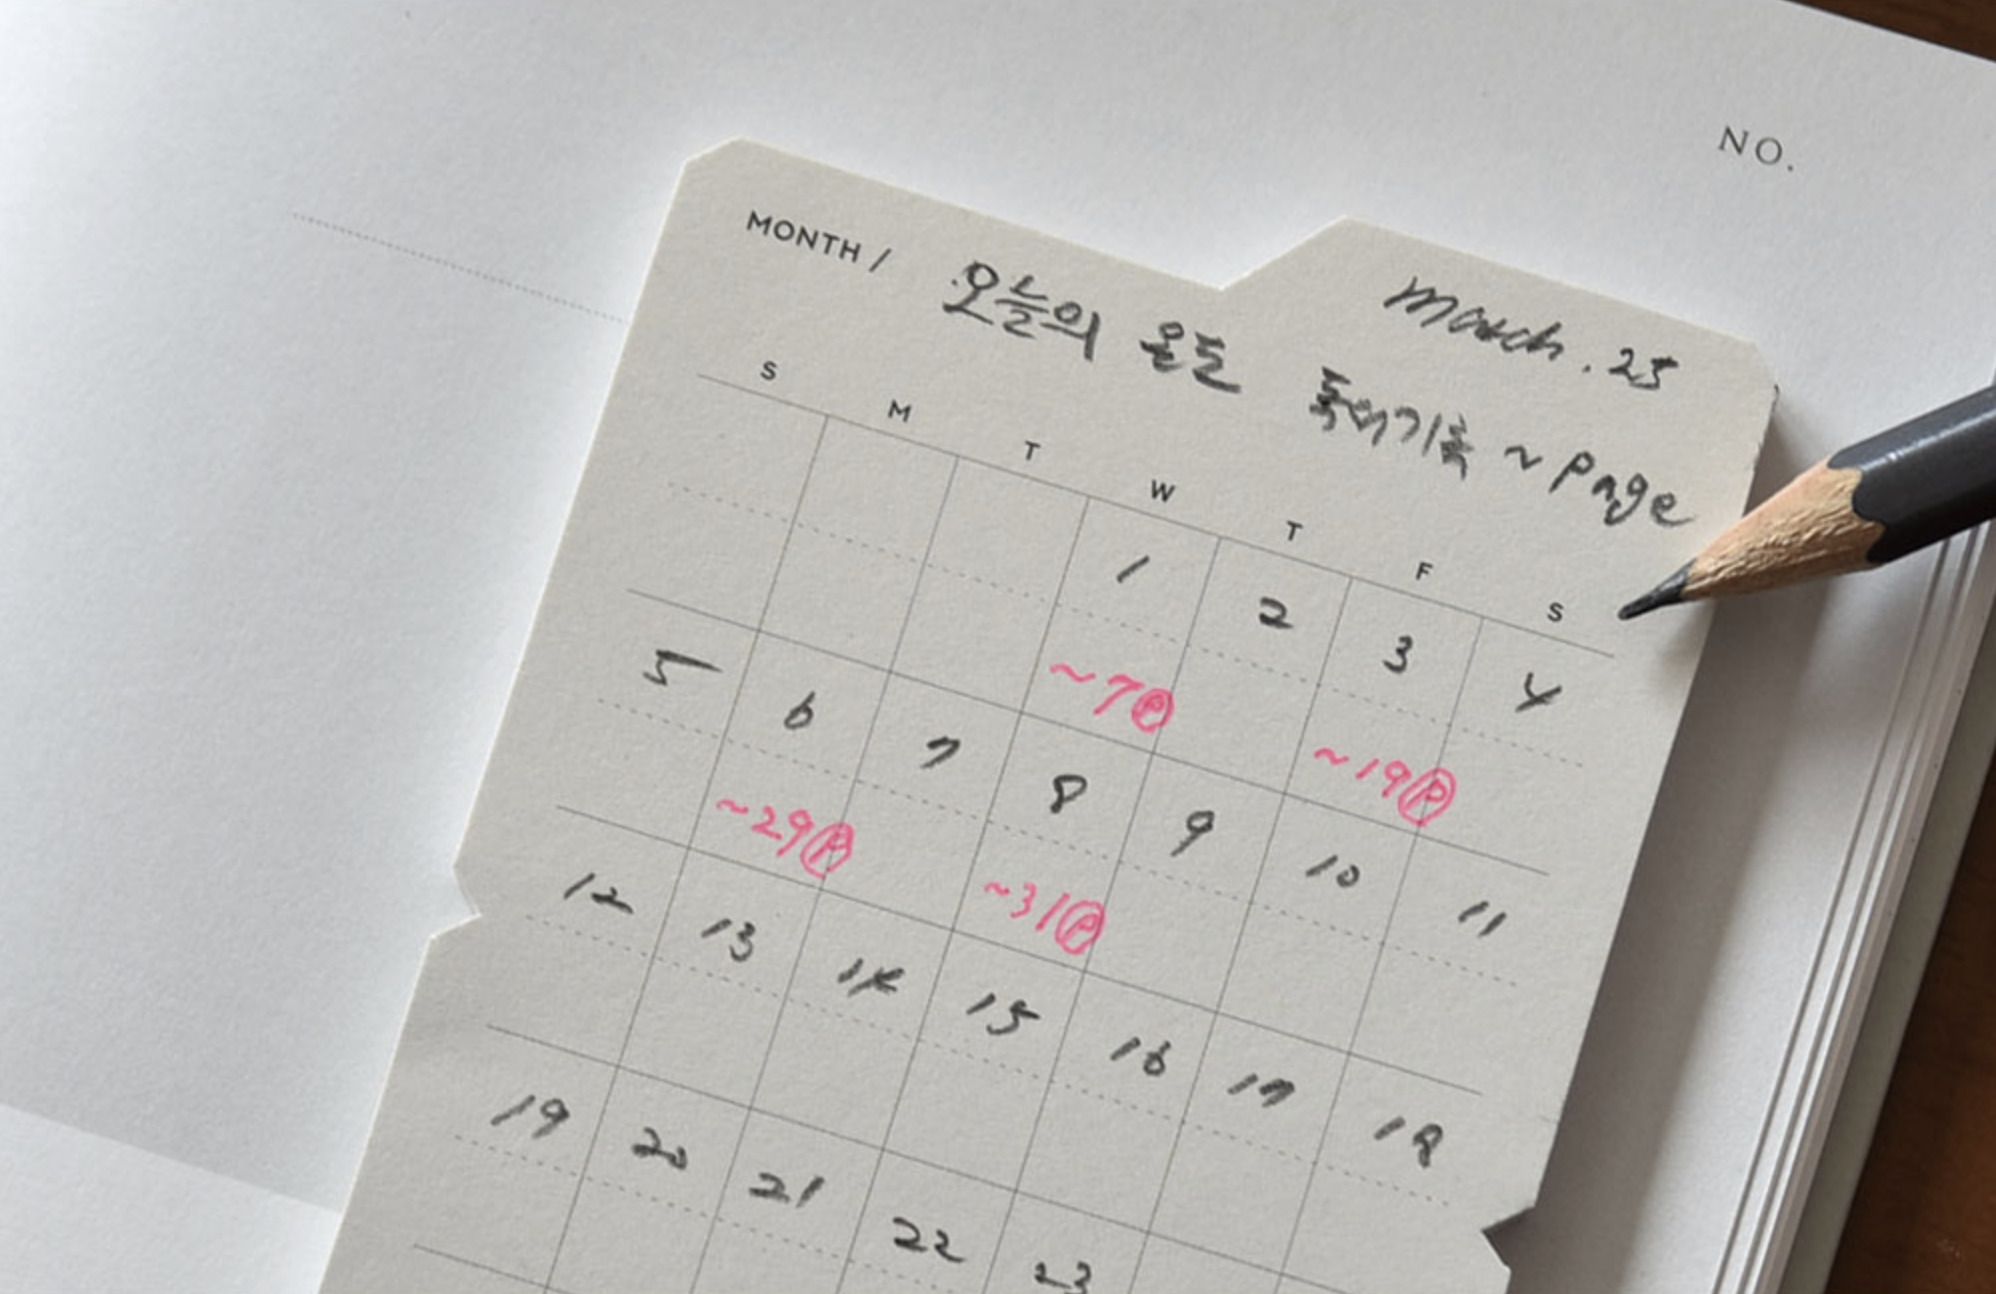 NO.
March. 23
MONTH / 오늘의 온도 독서기록 ~ page
S M T W T F S
1 2 3 4
~7Ⓟ ~19Ⓟ
5 6 7 8 9 10 11
~29Ⓟ ~31Ⓟ
12 13 14 15 16 17 18
19 20 21 22 23